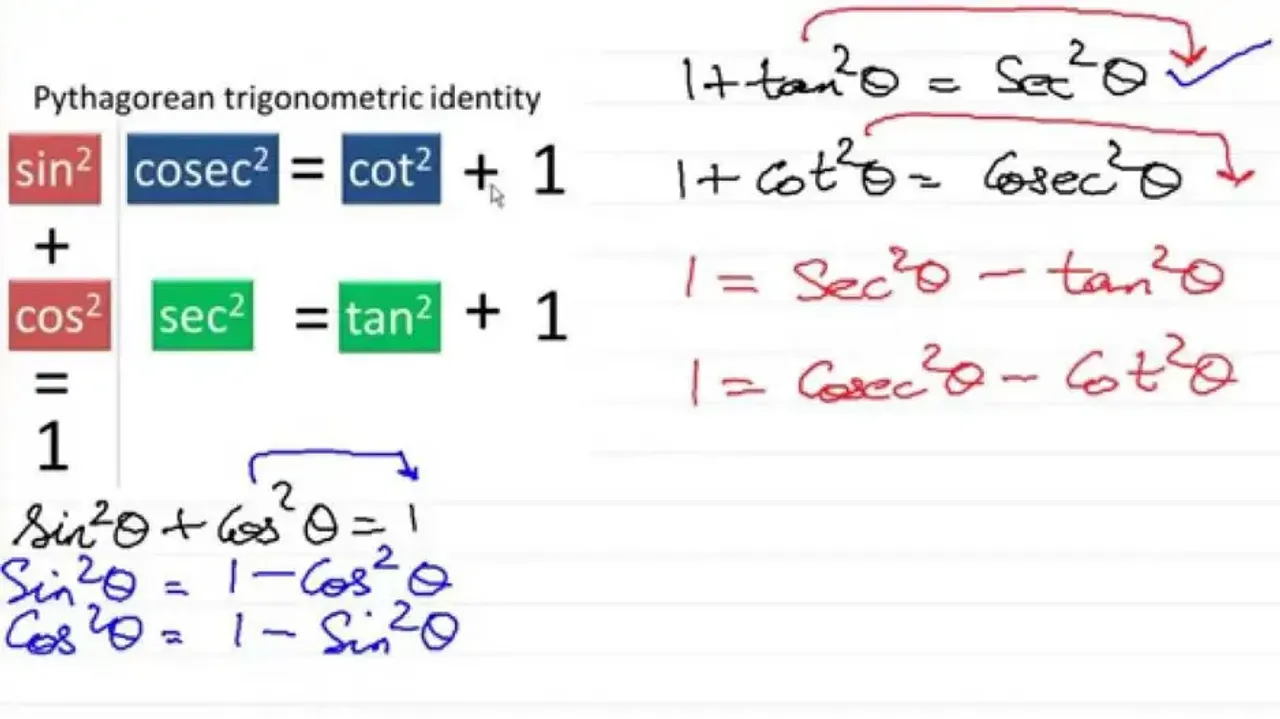 Pythagorean trigonometric identity
sin² cosec² = cot² + 1
+
cos² sec² = tan² + 1
=
1
sin²θ + Cos²θ = 1
Sin²θ = 1 - Cos²θ
Cos²θ = 1 - Sin²θ
1 + tan²θ = Sec²θ
1 + Cot²θ = Cosec²θ
1 = Sec²θ - tan²θ
1 = Cosec²θ - Cot²θ